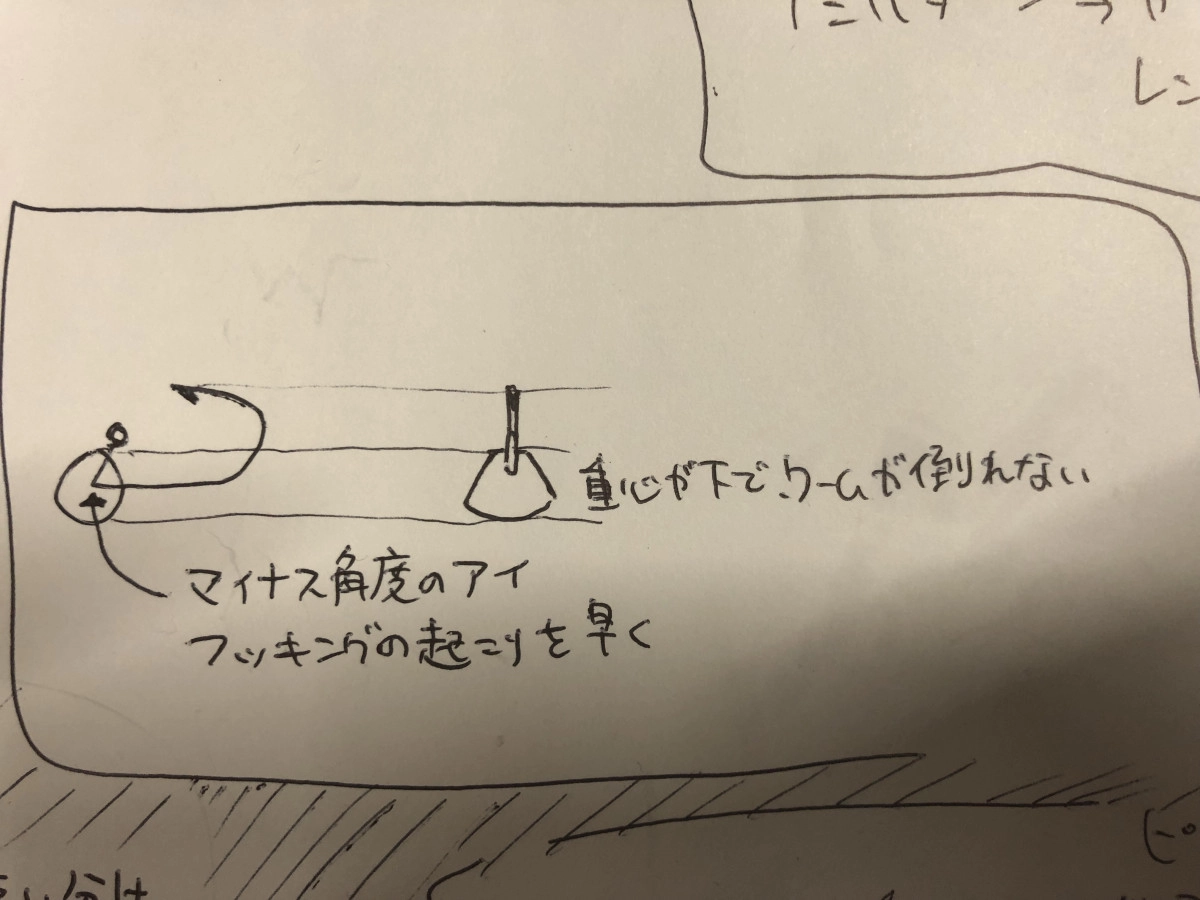 重心が下でワームが倒れない
マイナス角度のアイ
フッキングの起こりを早く